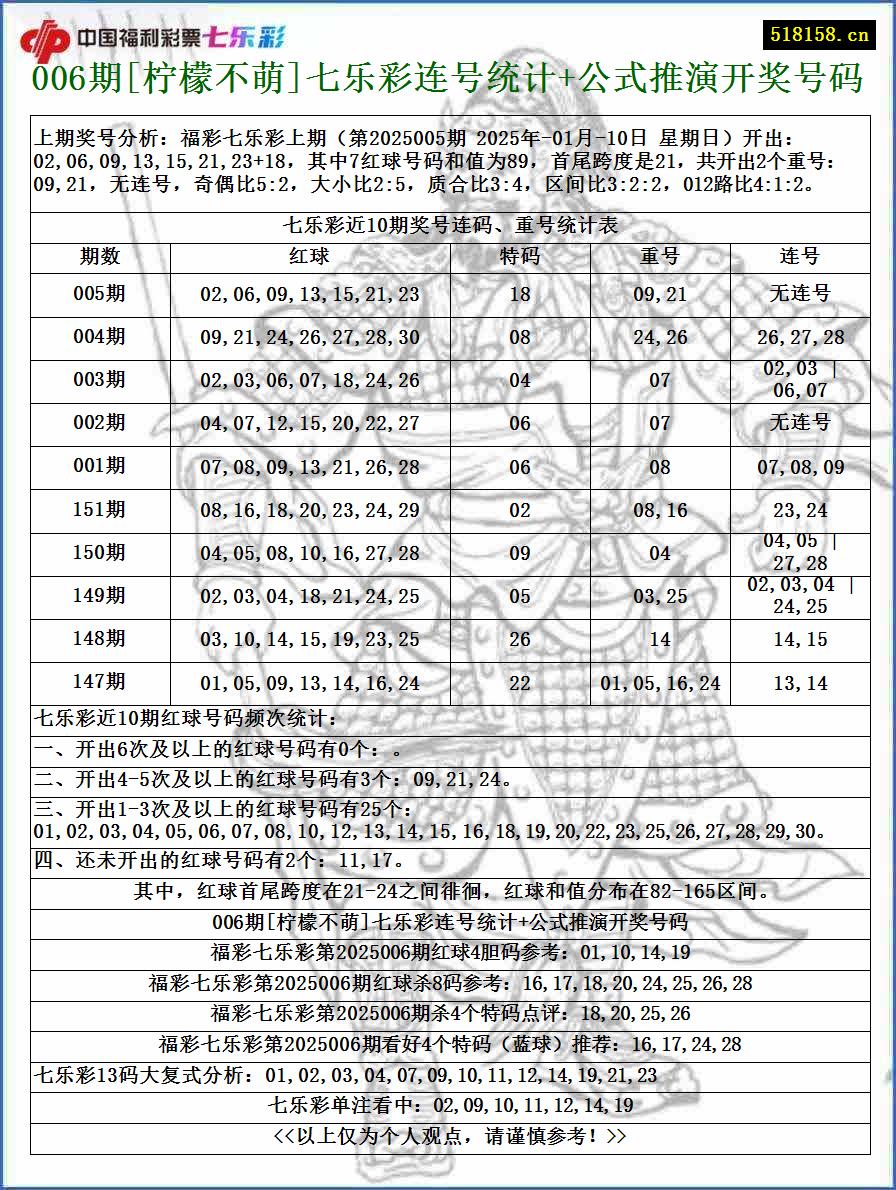 中国福利彩票七乐彩
518158.cn
006期[柠檬不萌]七乐彩连号统计+公式推演开奖号码
上期奖号分析：福彩七乐彩上期（第2025005期 2025年-01月-10日 星期日）开出：
02,06,09,13,15,21,23+18，其中7红球号码和值为89，首尾跨度是21，共开出2个重号：
09,21，无连号，奇偶比5:2，大小比2:5，质合比3:4，区间比3:2:2，012路比4:1:2。
七乐彩近10期奖号连码、重号统计表
期数 红球 特码 重号 连号
005期 02,06,09,13,15,21,23 18 09,21 无连号
004期 09,21,24,26,27,28,30 08 24,26 26,27,28
003期 02,03,06,07,18,24,26 04 07 02,03 |
06,07
002期 04,07,12,15,20,22,27 06 07 无连号
001期 07,08,09,13,21,26,28 06 08 07,08,09
151期 08,16,18,20,23,24,29 02 08,16 23,24
150期 04,05,08,10,16,27,28 09 04 04,05 |
27,28
149期 02,03,04,18,21,24,25 05 03,25 02,03,04 |
24,25
148期 03,10,14,15,19,23,25 26 14 14,15
147期 01,05,09,13,14,16,24 22 01,05,16,24 13,14
七乐彩近10期红球号码频次统计：
一、开出6次及以上的红球号码有0个：。
二、开出4-5次及以上的红球号码有3个：09,21,24。
三、开出1-3次及以上的红球号码有25个：
01,02,03,04,05,06,07,08,10,12,13,14,15,16,18,19,20,22,23,25,26,27,28,29,30。
四、还未开出的红球号码有2个：11,17。
其中，红球首尾跨度在21-24之间徘徊，红球和值分布在82-165区间。
006期[柠檬不萌]七乐彩连号统计+公式推演开奖号码
福彩七乐彩第2025006期红球4胆码参考：01,10,14,19
福彩七乐彩第2025006期红球杀8码参考：16,17,18,20,24,25,26,28
福彩七乐彩第2025006期杀4个特码点评：18,20,25,26
福彩七乐彩第2025006期看好4个特码（蓝球）推荐：16,17,24,28
七乐彩13码大复式分析：01,02,03,04,07,09,10,11,12,14,19,21,23
七乐彩单注看中：02,09,10,11,12,14,19
<<以上仅为个人观点，请谨慎参考！>>